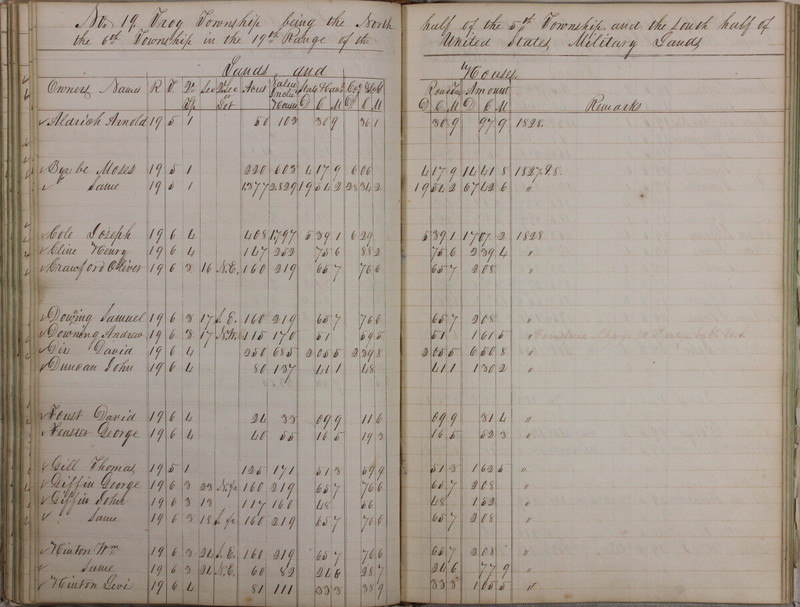 No. 19, Troy Township being the North half of the 5th Township and the South half of
the 6th Township in the 19th Range of the United States Military Lands
Lands and Houses
Owners Names R T Acres Road Amount Remarks
D C M D C M
Aldrich Arnold 19 5 1 50 103 309 361 309 979 1828.
Beebe Moses 19 5 1 220 603 4 17 9 6 06 4 17 9 14 41 8 1827 & 28.
Same 19 5 1 1377 2829 19 54 2 28 34 2 19 54 2 67 42 6 "
Cole Joseph 19 6 4 408 1797 5 39 1 6 29 5 39 1 17 07 2 1828
Cline Henry 19 6 4 147 252 75 6 88 2 75 6 2 39 4 "
Crawford Oliver 19 6 3 16 N.E. 160 219 65 7 76 6 65 7 2 08 "
Downing Samuel 19 6 3 17 S.E. 160 219 65 7 76 6 65 7 2 08 "
Downing Andrew 19 6 3 17 N.W. 115 170 51 59 5 51 1 61 5 "
David 19 6 4 250 685 2 05 5 2 39 8 2 05 5 6 50 8 "
Duncan John 19 6 4 80 137 41 1 48 41 1 1 30 2 "
Foust David 19 6 4 24 33 09 9 11 6 09 9 31 4 "
George 19 6 4 40 55 16 5 19 3 16 5 52 3 "
Gill Thomas 19 5 1 125 171 51 3 59 9 51 3 1 62 5 "
Giffin George 19 6 3 23 160 219 65 7 76 6 65 7 2 08 "
Giffin John 19 6 3 13 117 160 48 56 48 1 52 "
Same 19 6 3 18 160 219 65 7 76 6 65 7 2 08 "
Hinton Wm 19 6 3 24 S.E. 160 219 65 7 76 6 65 7 2 08 "
Same 19 6 3 24 N.E. 60 82 24 6 28 7 24 6 77 9 "
Hinton Levi 19 6 4 81 111 33 3 38 9 33 3 1 05 5 "